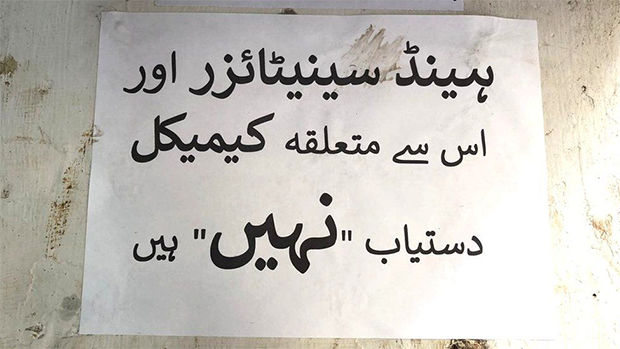 ہینڈ سینیٹائزر اور
اس سے متعلقہ کیمیکل
دستیاب "نہیں" ہیں